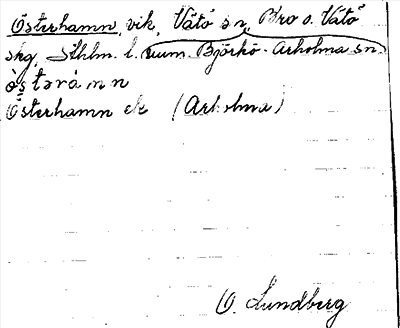 Österhamn, vik, Vätö sn, Bro o. Vätö
skg, Sthlm. l. num. Björkö-Arholma sn.
Österhamn ek (Arholma)
O. Lundberg